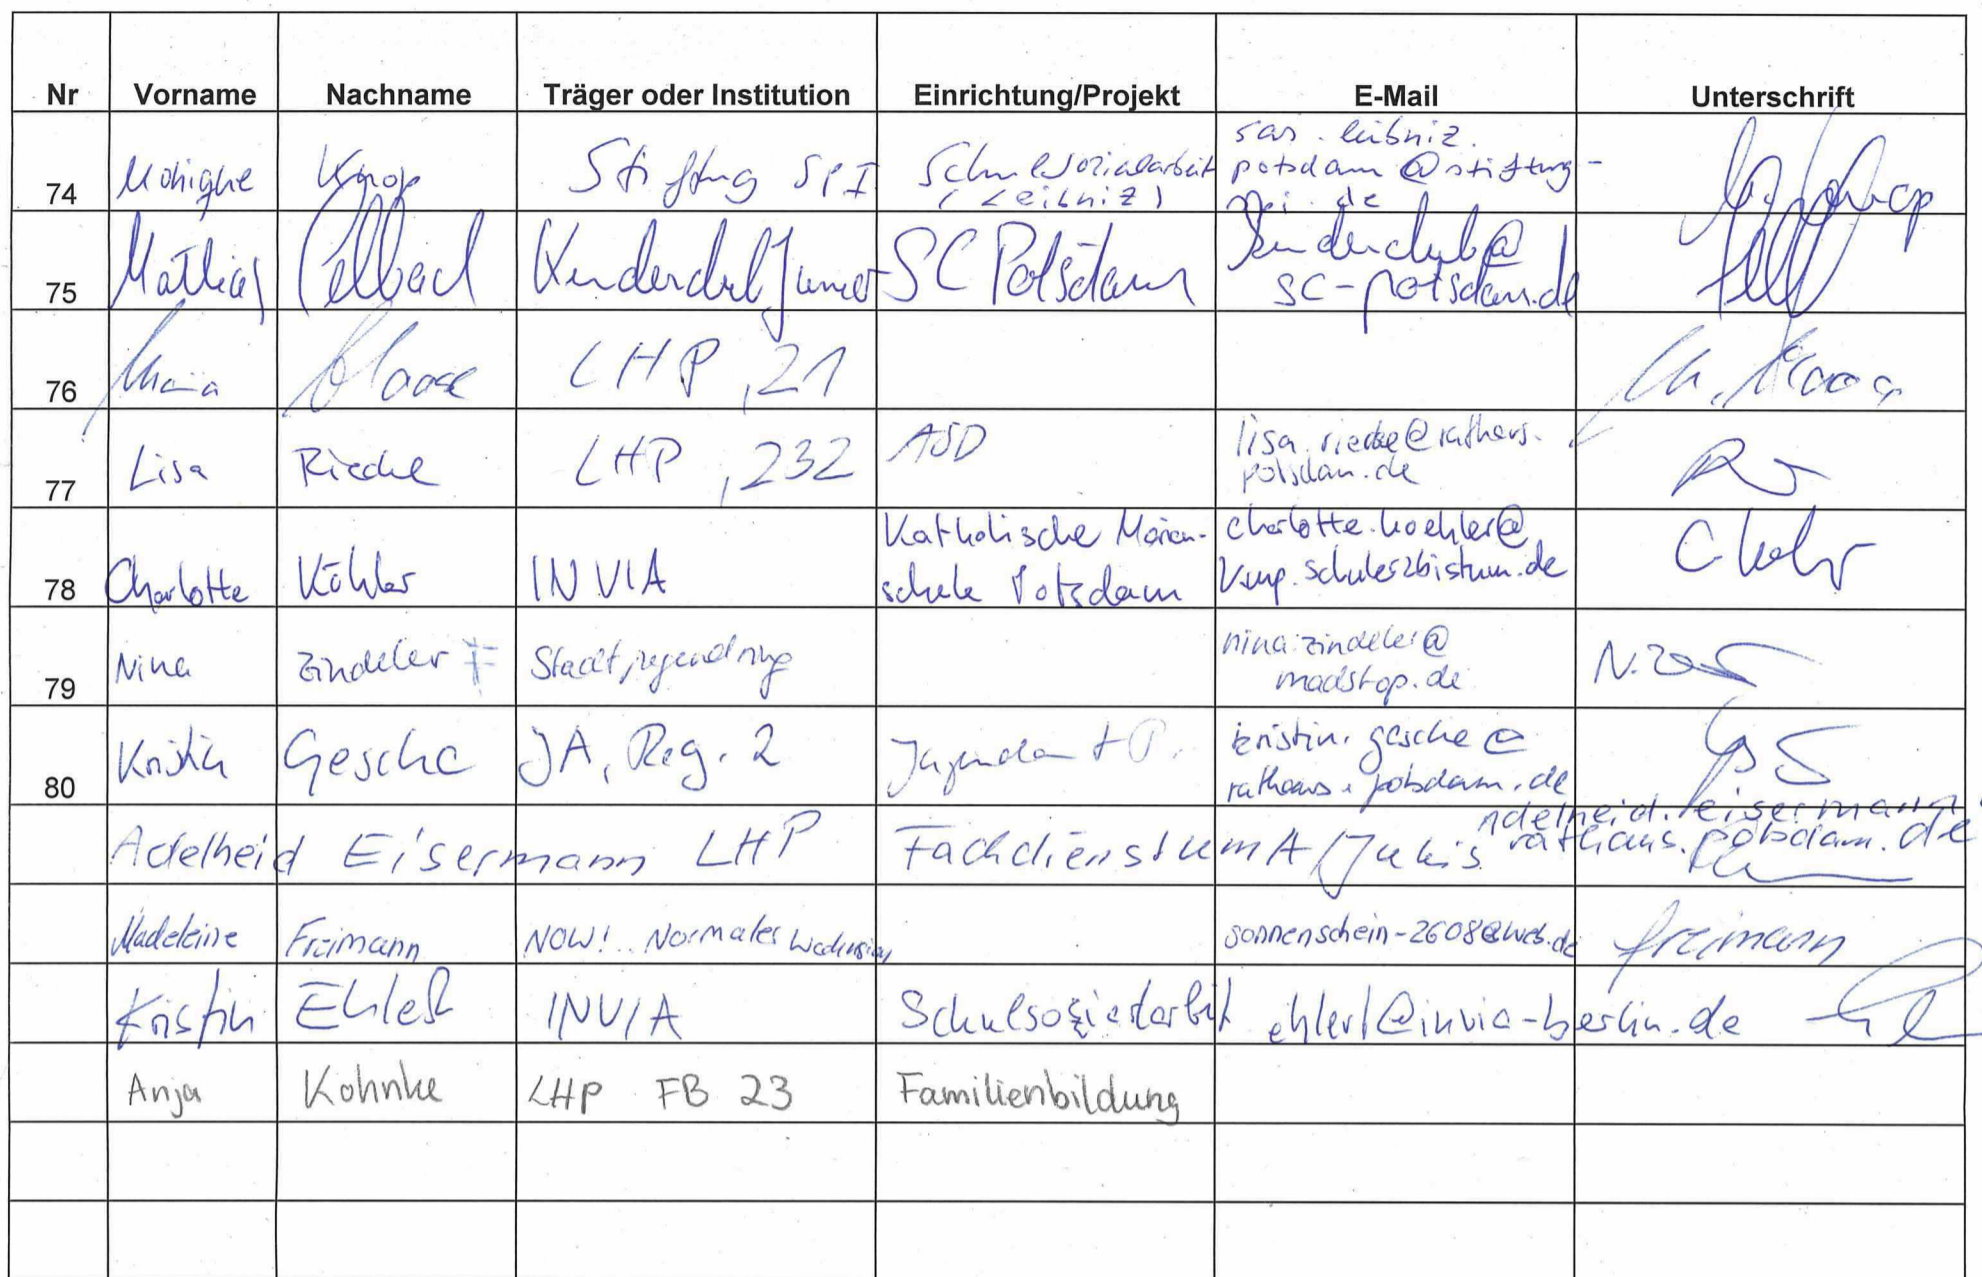 Nr Vorname Nachname Träger oder Institution Einrichtung/Projekt E-Mail Unterschrift
74 Monique Knop Stiftung SPI Schulsozialarbeit (Leibniz) sas.leibniz.potsdam@stiftung-spi.de
75 Mathias Kinderclub Junior SC Potsdam kinderclub@sc-potsdam.de
76 Maria Haase LHP, 21 M. Haase
77 Lisa Riedke LHP, 232 ASD
78 Charlotte Köhler INVIA Katholische Marienschule Potsdam
79 Nina Zindeler Stadtjugendring nina.zindeler@madstop.de
80 Kristin Gesche JA, Reg. 2 Jugendamt P. kristin.gesche@rathaus.potsdam.de
Adelheid Eisermann LHP Fachdienst adelheid.eisermann rathaus.potsdam.de
Madeleine Freimann NOW! Normales sonnenschein-2608@web.de Freimann
Kristin Ehlert INVIA Schulsozialarbeit ehlert@invia-berlin.de
Anja Kohnke LHP FB 23 Familienbildung